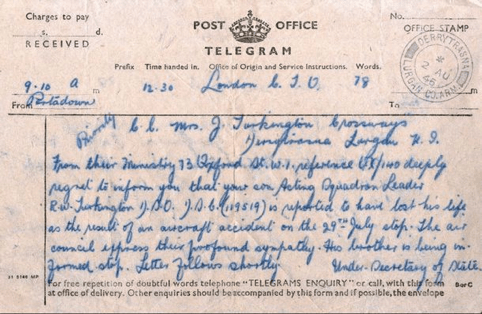 Charges to pay
s. d.
RECEIVED
POST OFFICE
TELEGRAM
No.
OFFICE STAMP
DERRYTRASNA
2 AU
45
LURGAN, CO. ARM
Prefix Time handed in. Office of Origin and Service Instructions. Words.
9-10 A m
12-30 London C.T.O. 78
From Portadown
To
m
Priority C.C. Mrs. J. Turkington Crossways
Lurgan N.I.
From Air Ministry 73 Oxford St. W.1. reference deeply
regret to inform you that your son Acting Squadron Leader
R.W. Turkington D.S.O. D.F.C. (119519) is reported to have lost his life
as the result of an aircraft accident on the 29TH July stop. The air
council express their profound sympathy. His brother is being in-
formed stop. Letter follows shortly. Under-Secretary of State.
For free repetition of doubtful words telephone "TELEGRAMS ENQUIRY" or call, with this form
at office of delivery. Other enquiries should be accompanied by this form and if possible, the envelope
B or C